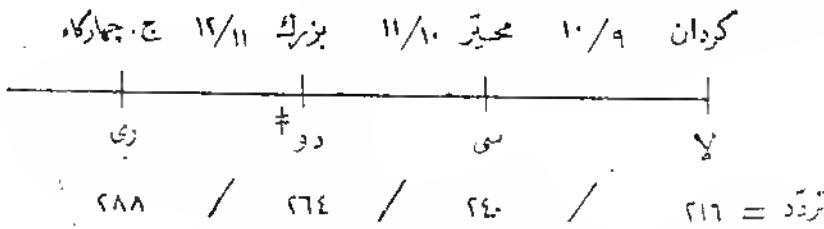 كردان ١٠/٩ محيّر ١١/١٠ بزرك ١٢/١١ ج. جهاركاه
لا سى دو ‡ رى
تردّد = ٢١٦ / ٢٤٠ / ٢٦٤ / ٢٨٨